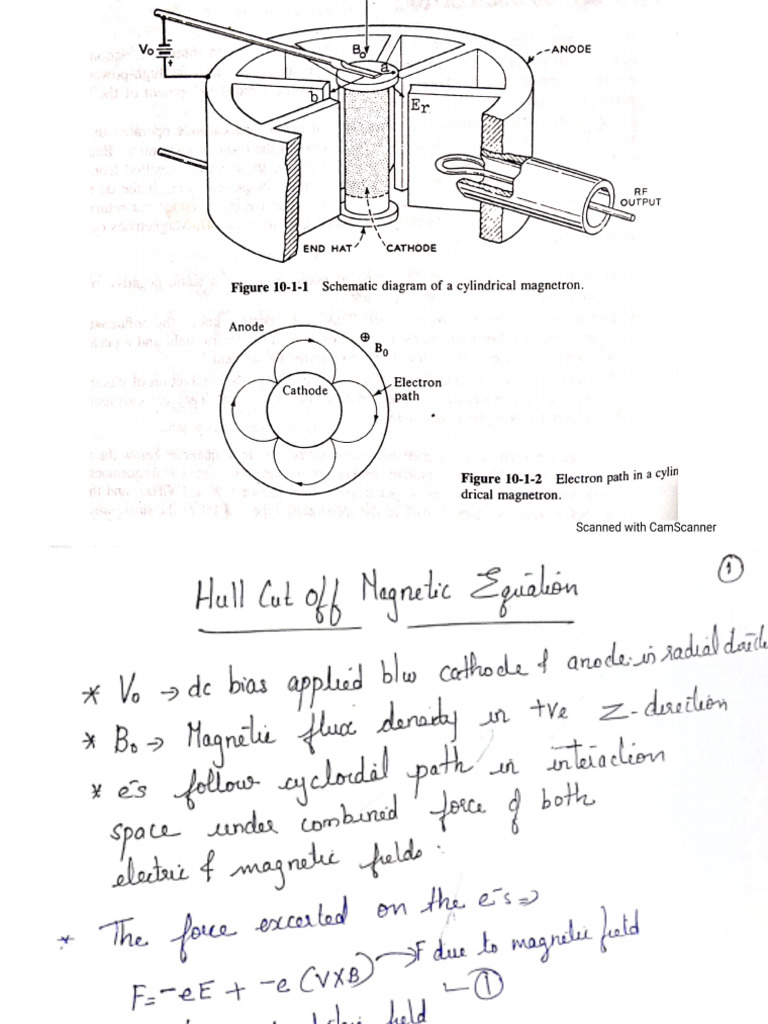 V₀
B₀
a
ANODE
b
Er
RF
OUTPUT
END HAT
CATHODE
Figure 10-1-1 Schematic diagram of a cylindrical magnetron.
Anode
⊕
B₀
Cathode
Electron
path
Figure 10-1-2 Electron path in a cylin
drical magnetron.
Scanned with CamScanner
1
Hull Cut off Magnetic Equation
* V₀ → dc bias applied b/w cathode & anode in radial
* B₀ → Magnetic flux density in +ve Z-direction
* e⁻s follow cycloidal path in interaction
space under combined force of both
electric & magnetic fields.
* The force excerted on the e⁻s ⇒
F = -eE + -e (V×B) → F due to magnetic field
—①
field